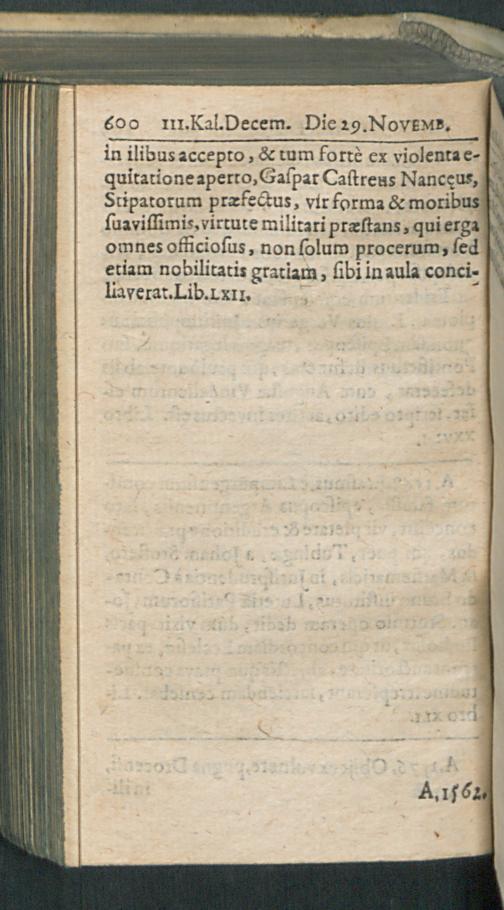 600 III.Kal.Decem. Die 29.NOVEMB.
in ilibus accepto, & tum fortè ex violenta e-
quitatione aperto, Gaſpar Caſtreus Nanceus,
Stipatorum præfectus, vir forma & moribus
ſuaviſſimis, virtute militari præſtans, qui erga
omnes officioſus, non ſolum procerum, ſed
etiam nobilitatis gratiam, ſibi in aula conci-
liaverat. Lib. LXII.
A, 1562.